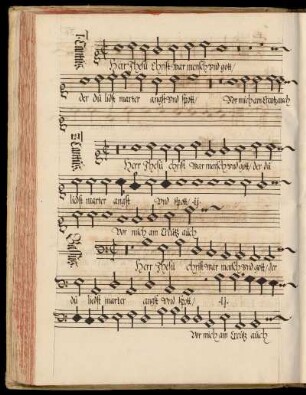 I. Cantus.
Herr Jhesu Christ war mensch vnd gott/
der du lidst marter angst vnd spott/ Vor mich am Creutz auch
II. Cantus.
Herr Jhesu christ war mensch vnd gott/ der du
lidst marter angst vnd spott/ .ij.
Vor mich am Creütz auch
Bassus.
Herr Jhesu christ war mensch vnd gott/ der
dü lidst marter angst vnd spott/ .ij.
Vor mich am Creütz aüch